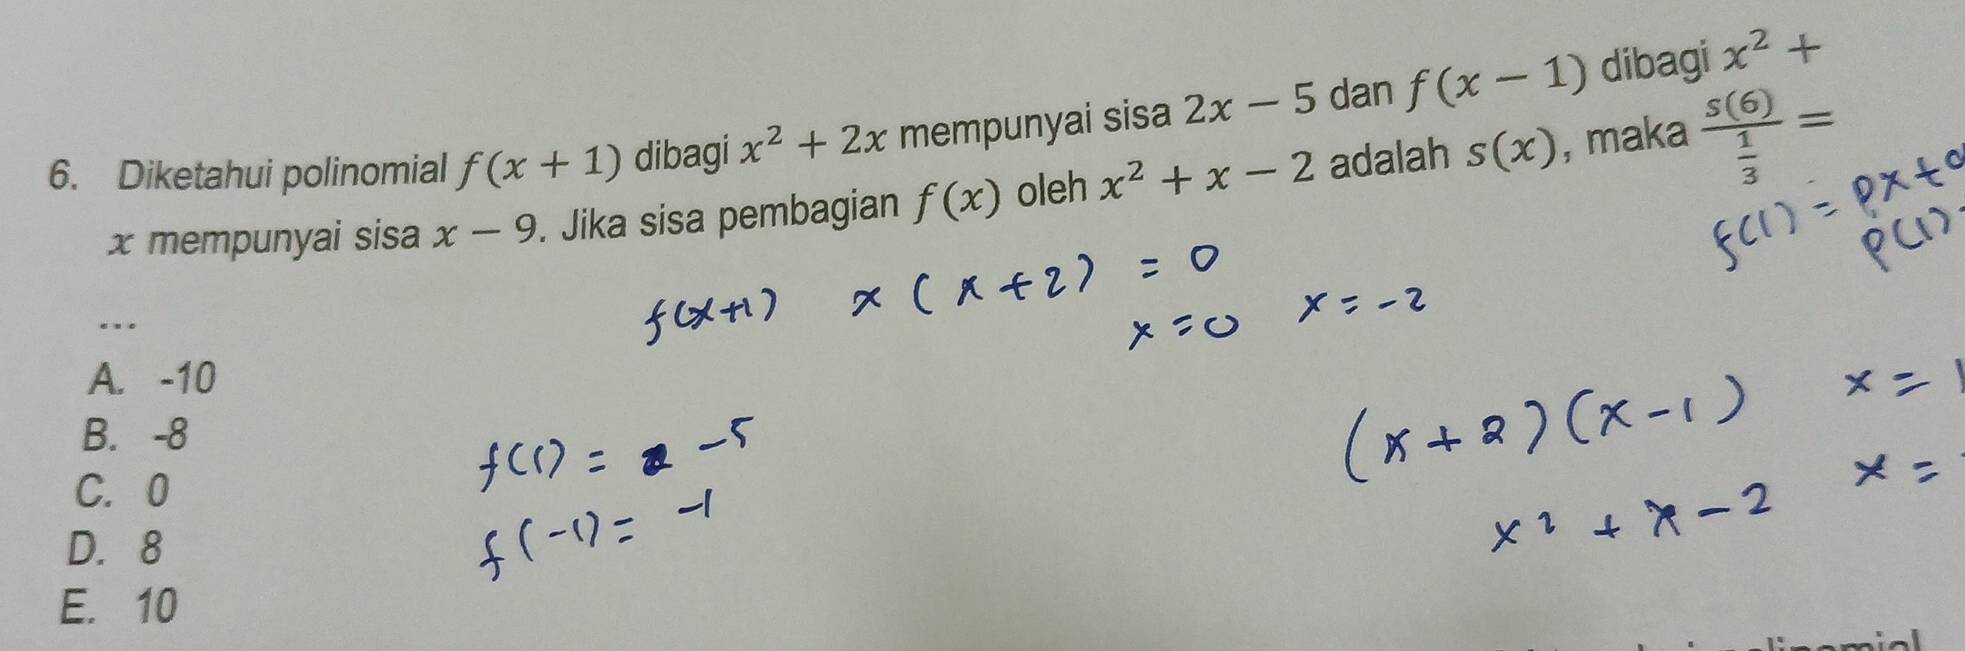 6. Diketahui polinomial f(x + 1) dibagi x² + 2x mempunyai sisa 2x − 5 dan f(x − 1) dibagi x² +
x mempunyai sisa x − 9. Jika sisa pembagian f(x) oleh x² + x − 2 adalah s(x), maka s(6)/(1/3) =
...
A. -10
B. -8
C. 0
D. 8
E. 10
f(x+1) x(x+2) = 0
x = 0 x = -2
f(1) = -5
f(-1) = -1
f(1) = px +
p(1)
(x+2)(x-1) x = 1
x² + x - 2 x =